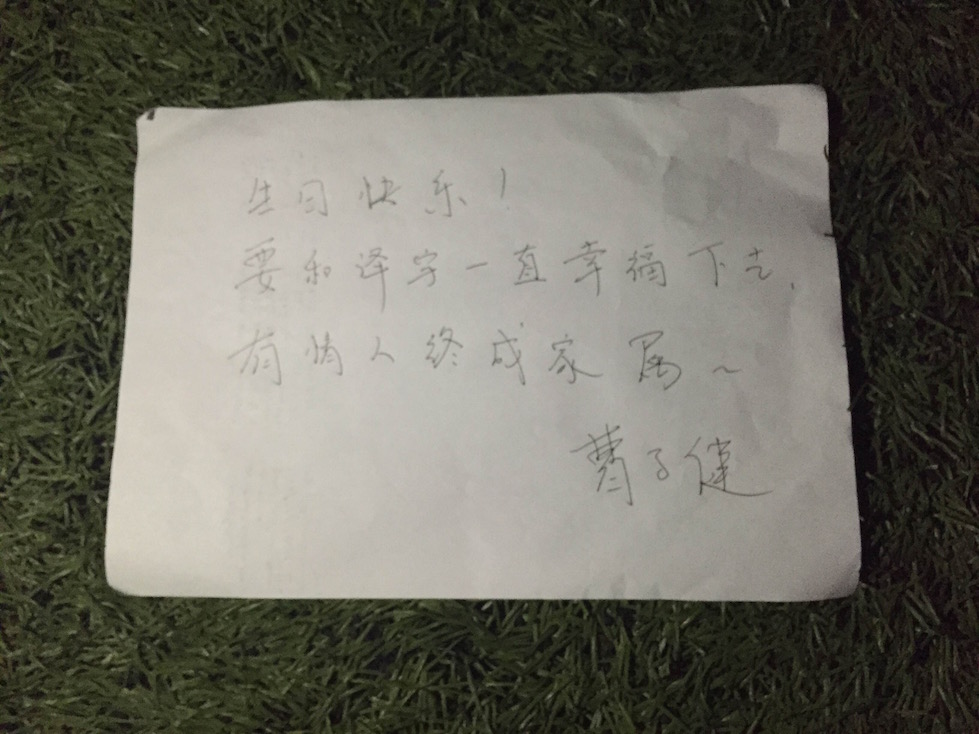 生日快乐!
要和泽宇一直幸福下去,
有情人终成家属~
曹子健